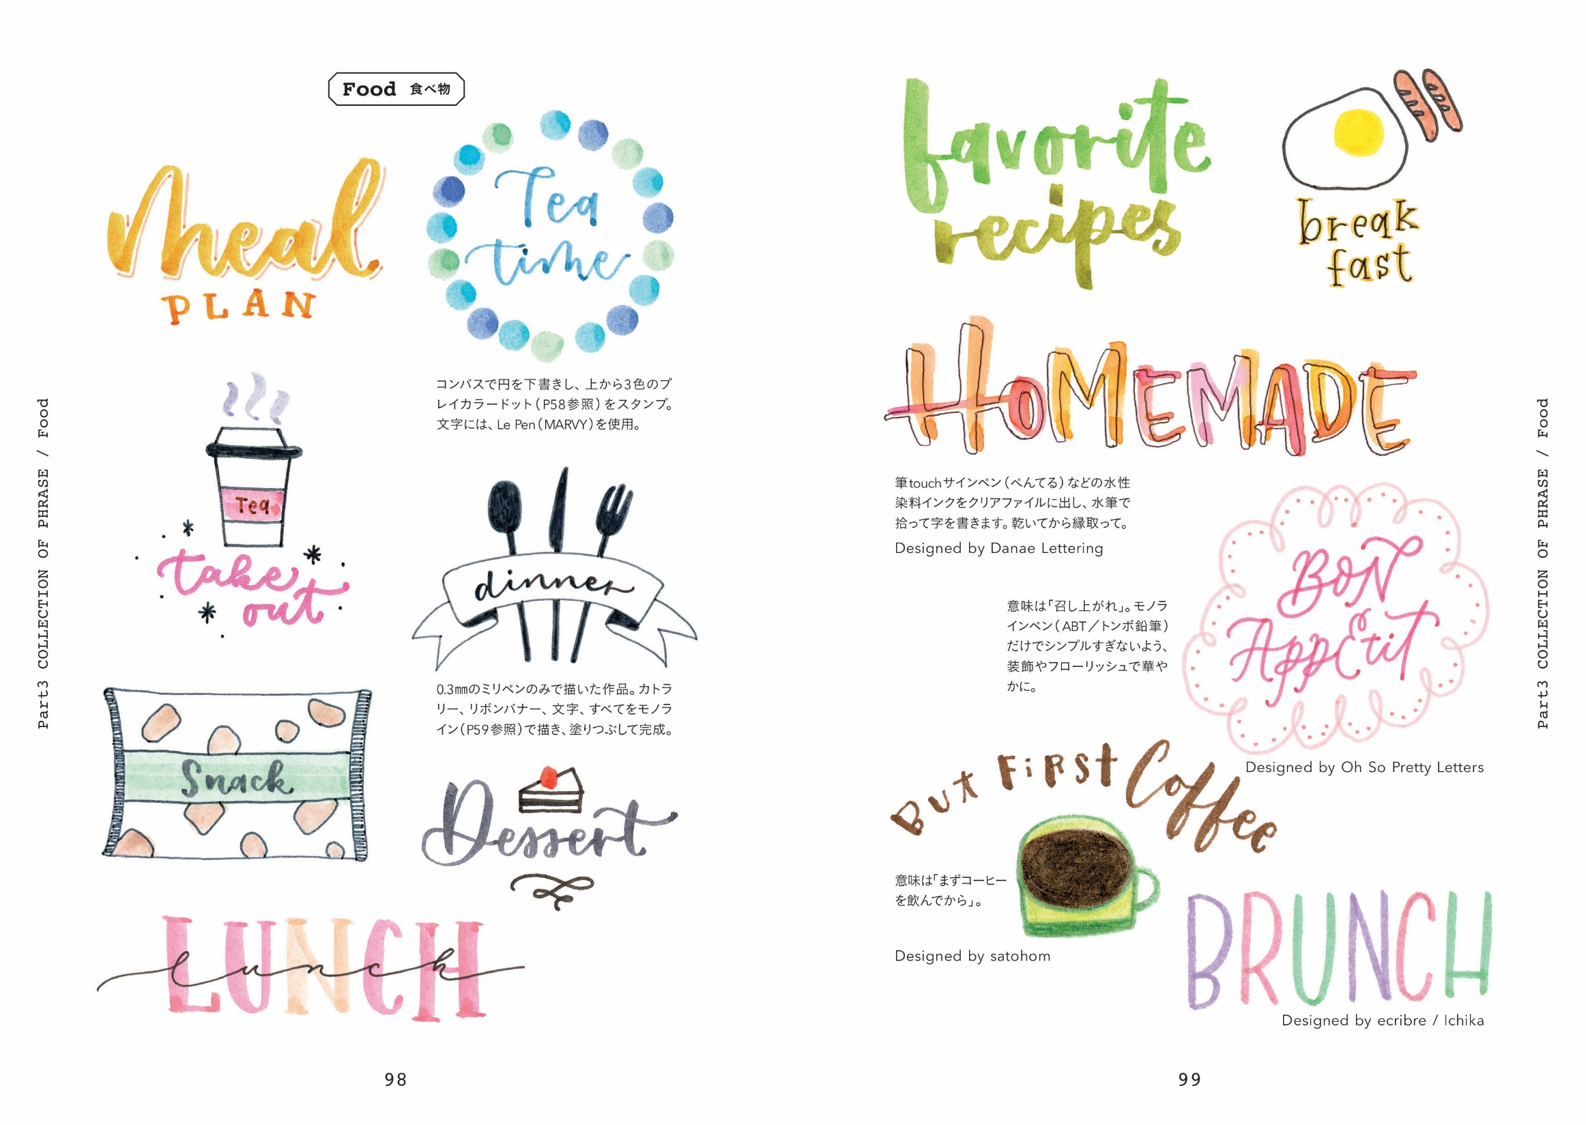 Food 食べ物
meal
PLAN
Tea
time
コンパスで円を下書きし、上から3色のプ
レイカラードット（P58参照）をスタンプ。
文字には、Le Pen（MARVY）を使用。
Tea
take
out
dinner
0.3㎜のミリペンのみで描いた作品。カトラ
リー、リボンバナー、文字、すべてをモノラ
イン（P59参照）で描き、塗りつぶして完成。
Snack
Dessert
LUNCH
lunch
Part3 COLLECTION OF PHRASE / Food
98
favorite
recipes
break
fast
HOMEMADE
筆touchサインペン（ぺんてる）などの水性
染料インクをクリアファイルに出し、水筆で
拾って字を書きます。乾いてから縁取って。
Designed by Danae Lettering
BON
AppEtit
意味は「召し上がれ」。モノラ
インペン（ABT／トンボ鉛筆）
だけでシンプルすぎないよう、
装飾やフローリッシュで華や
かに。
Designed by Oh So Pretty Letters
BUT FiRST Coffee
意味は「まずコーヒー
を飲んでから」。
Designed by satohom
BRUNCH
Designed by ecribre / Ichika
Part3 COLLECTION OF PHRASE / Food
99